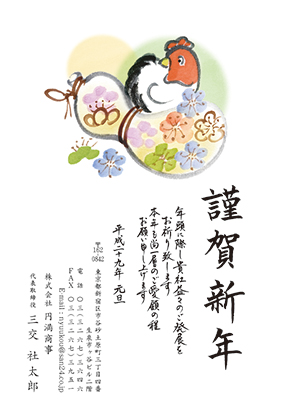 謹賀新年
年頭に際し貴社益々のご発展を
お祈り致します
本年も尚一層のご愛顧の程
お願い申し上げます
平成二十九年 元旦
〒162
0842
東京都新宿区市谷砂土原町三丁目四番
生泉市ヶ谷ビル二階
電話 〇三(三二六七)三六四六
FAX 〇三(三二六七)三九五一
E-mail:nyuukou@san24.co.jp
株式会社 円満商事
代表取締役 三交社太郎